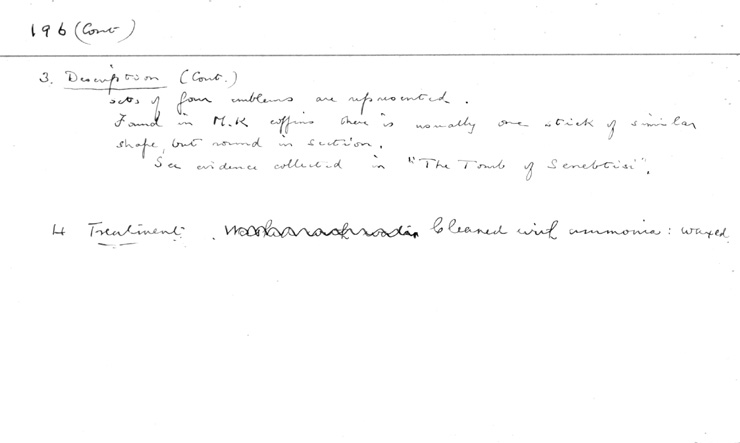 196 (Cont)
3. Description (Cont.)
sets of four emblems are represented.
Found in M.K coffins there is usually one stick of similar
shape, but round in section.
See evidence collected in "The Tomb of Senebtisi".
4 Treatment. Cleaned with ammonia: waxed